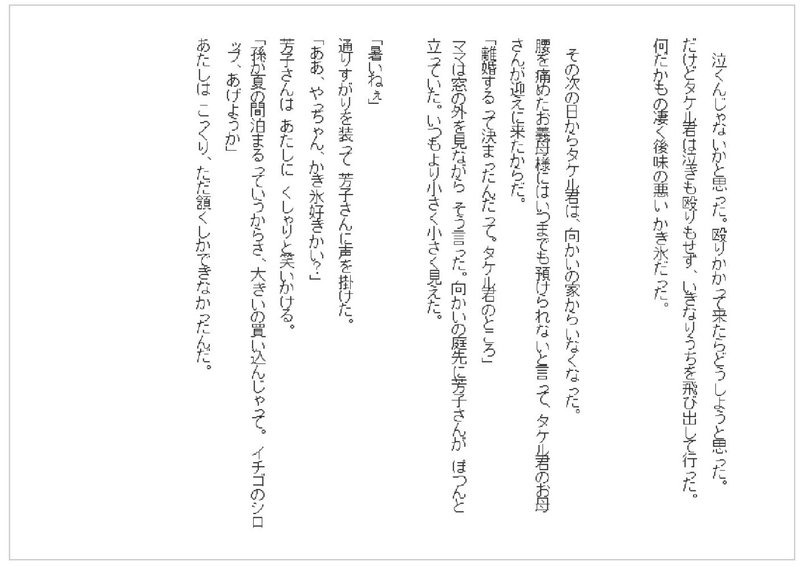 泣くんじゃないかと思った。殴りかかって来たらどうしようと思った。
だけどタケル君は泣きも殴りもせず、いきなりうちを飛び出して行った。
何だかもの凄く後味の悪い かき氷だった。
その次の日からタケル君は、向かいの家からいなくなった。
腰を痛めたお義母様にはいつまでも預けられないと言って、タケル君のお母
さんが迎えに来たからだ。
「離婚する って決まったんだって。タケル君のところ」
ママは窓の外を見ながら そう言った。向かいの庭先に芳子さんが ぽつんと
立っていた。いつもより小さく小さく見えた。
「暑いねぇ」
通りすがりを装って 芳子さんに声を掛けた。
「ああ、やっちゃん、かき氷好きかい?」
芳子さんは あたしに くしゃりと笑いかける。
「孫が夏の間泊まるっていうからさ、大きいの買い込んじゃって。イチゴのシロ
ップ、あげようか」
あたしは こっくり、ただ頷くしかできなかったんだ。